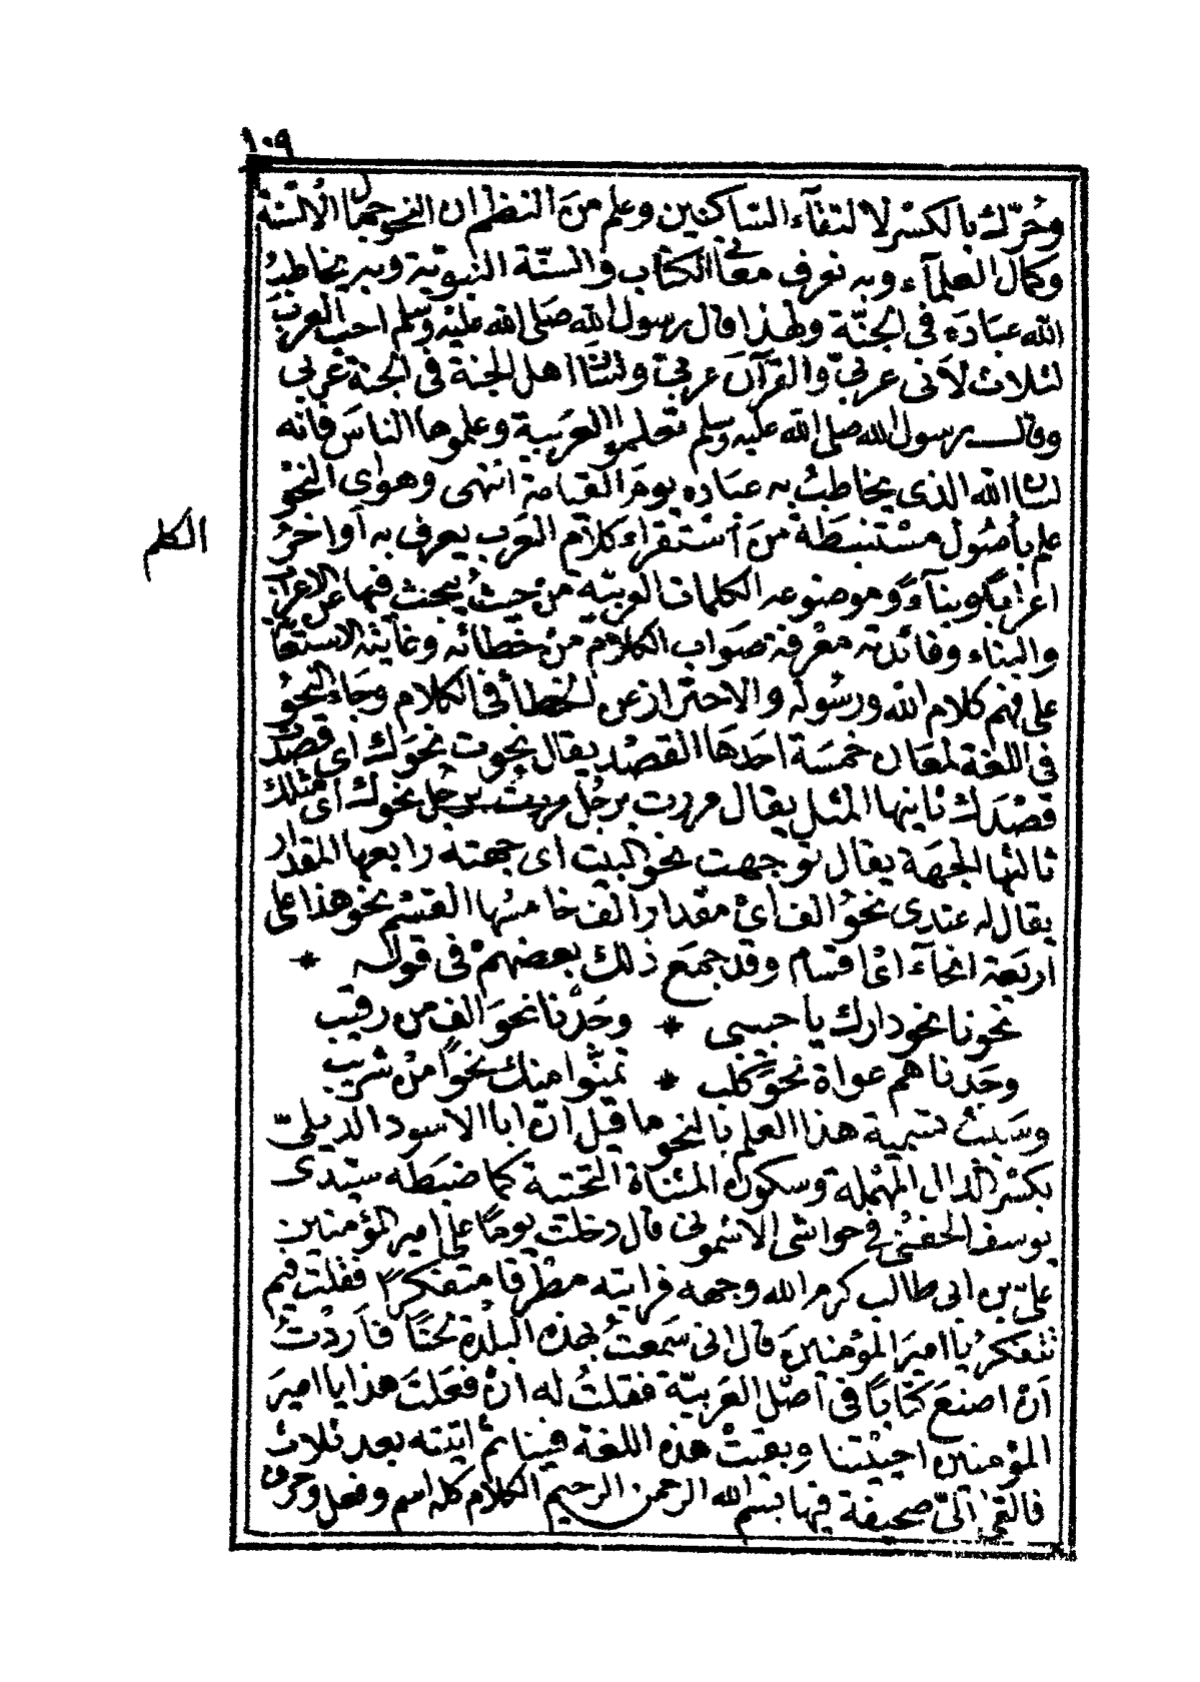 ١٠٩
وحُرّك بالكسْر لالتقآء السّاكنين وعلم منَ النظم ان النحو جمال الالسّنة
وَكمال العلمآء وبه نعرف معانى الكتاب والسنّة النبويّة وبه يخاطبُ
الله عبَادَه فى الجنّة ولهذا قال رسول الله صَلى الله عليْه وسلم احب العربَ
لثلاث لأنى عربىّ والقرآن عربىّ ولسَان اهل الجنة فى الجنة عربى
وقال رسول الله صلى الله عليه وسلم تعلموا العرَبية وعلموها الناسَ فانه
لسان الله الذى يخاطبُ به عبَاده يومَ القيامة انتهى وهو اى النحْو
علم بأصُول مسْتنبطَة منَ أسْتقراء كلآم العرَب يعرف به أواخرُ
الكلم
اعرابًا وبنآءً وموضوعه الكلمات العربيّة منْ حيثُ يبحث فيها عن الاعراب
والبناء وفائدته معْرفة صَواب الكلام منْ خطائه وغايته الاستعَا
على فهم كلام الله ورسُوله والاحتراز عن الخطأ فى الكلام وجَاء النحْوُ
فى اللغة لمعَان خمسَة احَدهَا القصْد يقال نحوت نحوَك اى قصدت
قصْدَك ثانيها المثل يقال مررت برجُل نحوك اى مثلك
ثالثها الجهَة يقال توجهت نحو البيت اى جهته رابعها المقدار
يقال له عندى نحوُ الف أىْ مقدار الف خامسُها القسْم نحو هذا على
اربَعة انحآء اىْ اقسام وقد جمَع ذلك بعضهمْ فى قوله *
نحونا نحو دارك يا حبيبى * وجَدْنا نحوَ الف من رقيب
وجَدناهم عواة نحوَ كلب * تمنّوا منك نحوًا منْ شريب
وسَبَبُ تسْمية هذا العلم بالنحو ما قيل انّ ابا الاسود الديلىّ
بكسْر الدال المهْملة وسكون المثناة التحتية كما ضبَطه سيّدى
يوسف الحفنى فى حواشى الاشمونى قال دخلت يومًا على امير المؤمنين
علىّ بن ابى طالب كرم الله وجهه فرايته مطْرقا متفكرًا فقلت فيم
تتفكرُ يا اميرَ المؤمنينَ قال انى سَمعتُ بهذه البلدة لحنًا فأردْتُ
أن اصنعَ كتابًا فى أصْل العَربيّة فقلتُ له انْ فعَلتَ هذا يا اميرَ
المؤمنين احييْتنا وبقيتْ هذه اللغة فينا ثمّ اتيته بعد ثلاث
فالقى الىّ صحيفة فيها بسْم الله الرحمن الرحيم الكلام كله اسم وفعل وحرف